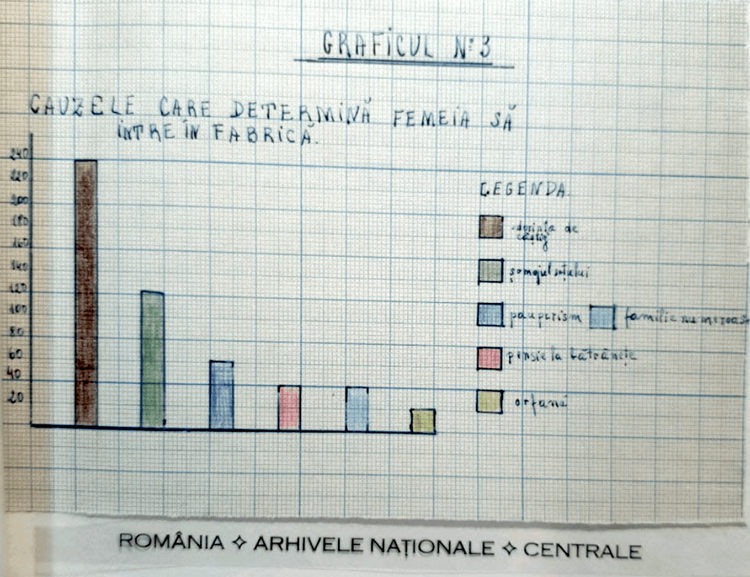 GRAFICUL Nº 3
CAUZELE CARE DETERMINĂ FEMEIA SĂ
INTRE ÎN FABRICĂ.
240
220
200
180
160
140
120
100
80
60
40
20
LEGENDA
dorința de
câștig
șomajul soțului
pauperism
familie numeroasă
pensie la bătrânețe
orfană
ROMÂNIA ✧ ARHIVELE NAȚIONALE ✧ CENTRALE